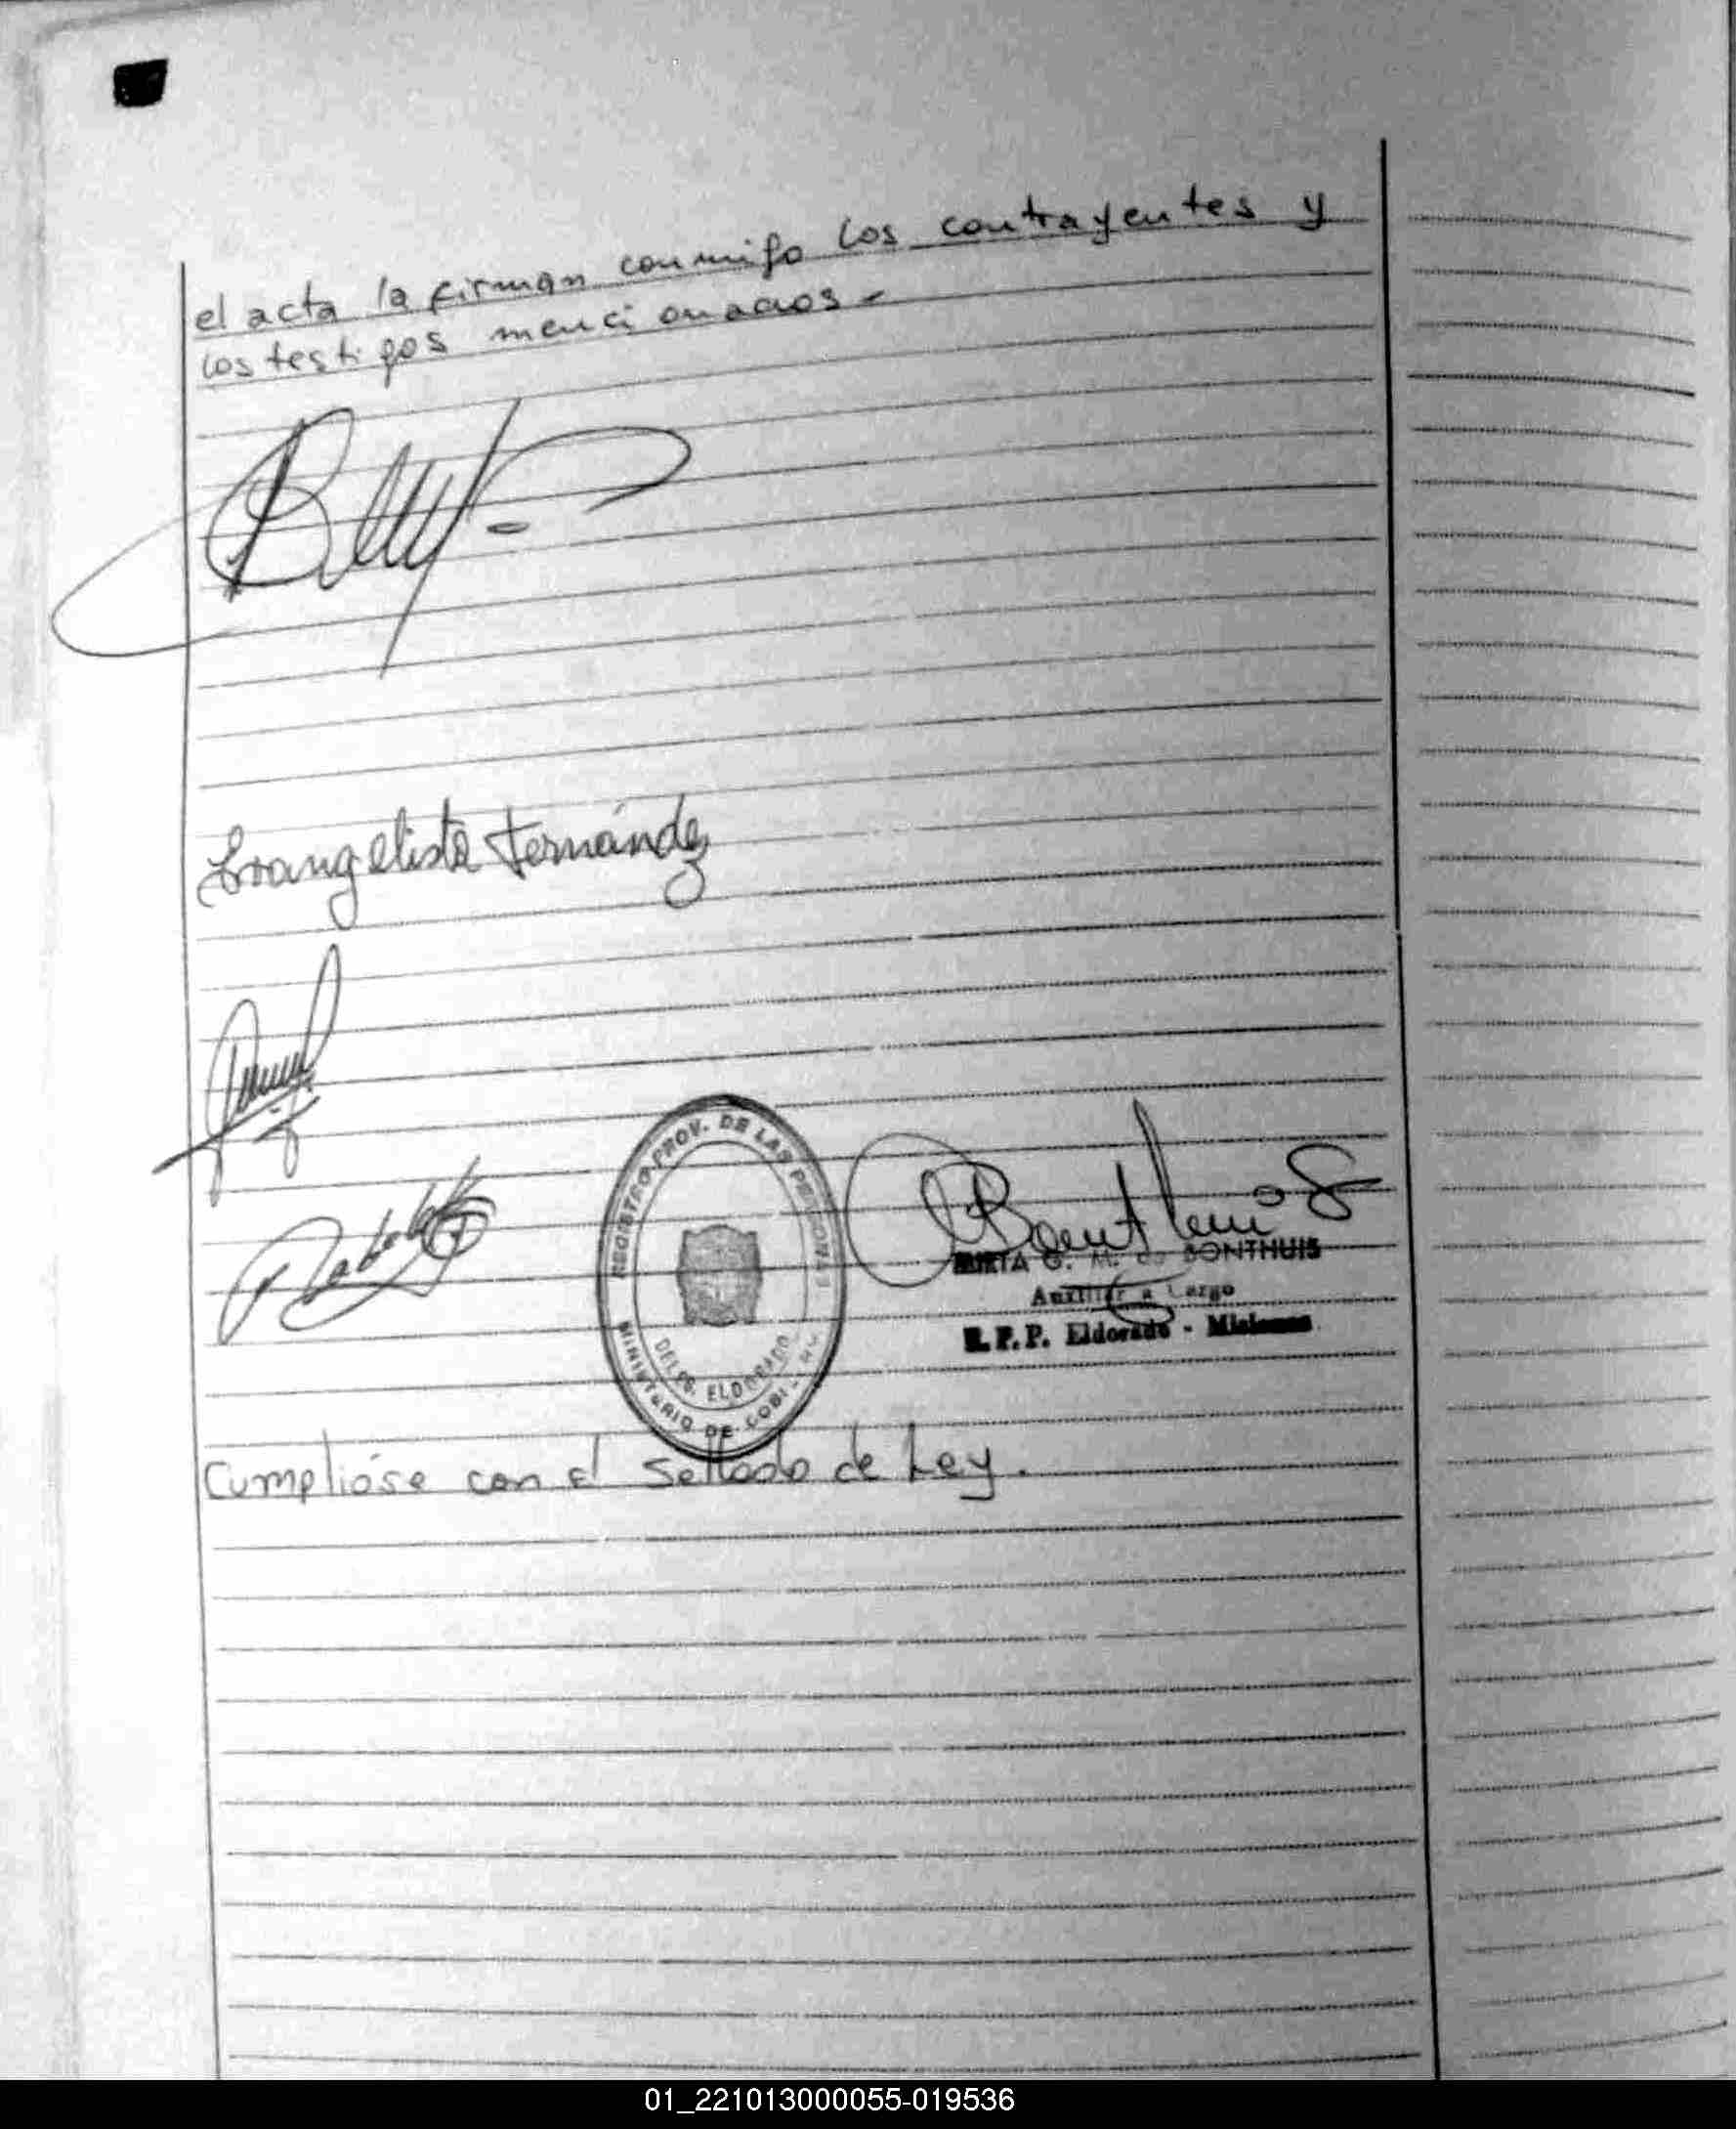 el acta la firman conmigo los contrayentes y
los testigos mencionados-
Evangelista Fernández
REGISTRO PROV. DE LAS PERSONAS
DELEG. ELDORADO
MINISTERIO DE GOBI
MIRTA G. M. de BONTHUIS
Auxiliar a Cargo
R. P. P. Eldorado - Misiones
Cumplióse con el Sellado de Ley.
01_221013000055-019536